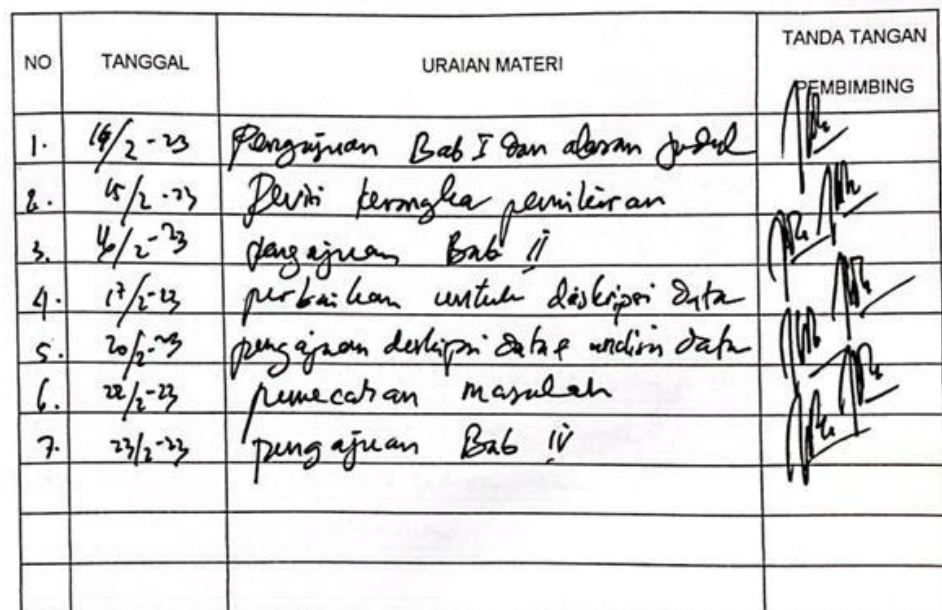 NO TANGGAL URAIAN MATERI TANDA TANGAN PEMBIMBING
1. 14/2-23 Pengajuan Bab I dan alasan judul
2. 15/2-23 Revisi kerangka pemikiran
3. 16/2-23 pengajuan Bab II
4. 17/2-23 perbaikan untuk diskripsi data
5. 20/2-23 pengajuan deskripsi data & analisis data
6. 22/2-23 pemecahan masalah
7. 23/2-23 pengajuan Bab IV